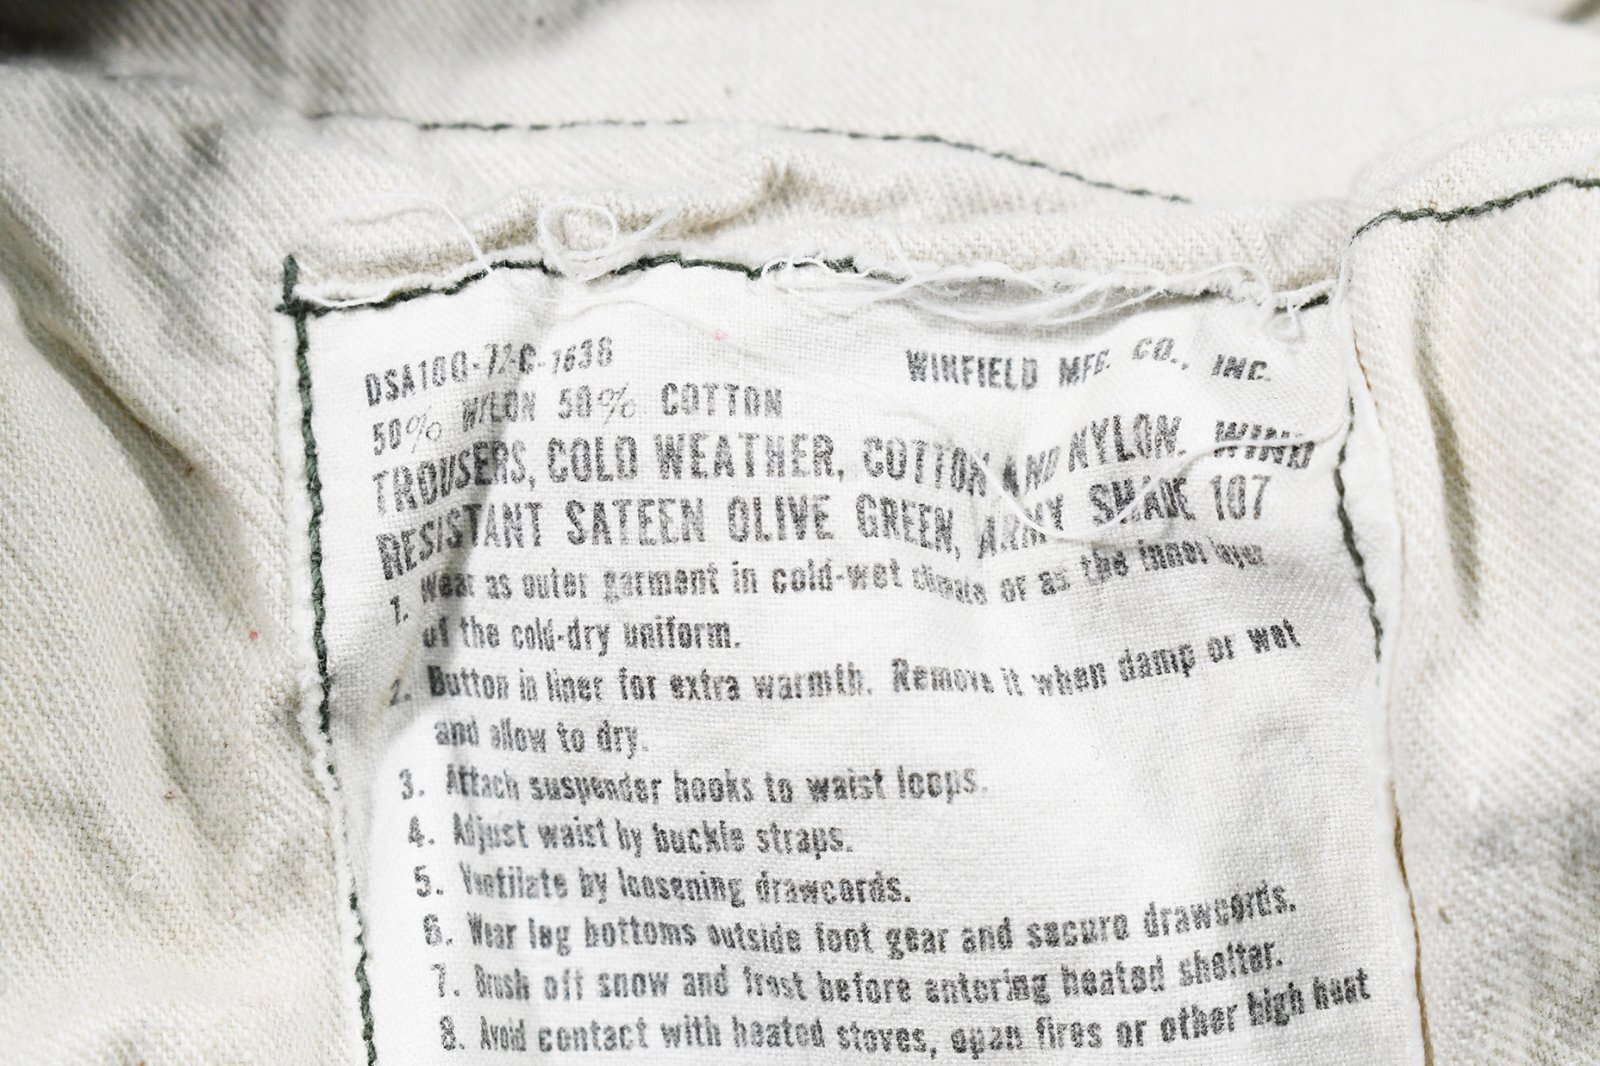 DSA100-72-C-1638 WINFIELD MFG. CO., INC.
50% NYLON 50% COTTON
TROUSERS, COLD WEATHER, COTTON AND NYLON. WIND
RESISTANT SATEEN OLIVE GREEN, ARMY SHADE 107
1. Wear as outer garment in cold-wet climate or as the inner layer
of the cold-dry uniform.
2. Button in liner for extra warmth. Remove it when damp or wet
and allow to dry.
3. Attach suspender hooks to waist loops.
4. Adjust waist by buckle straps.
5. Ventilate by loosening drawcords.
6. Wear leg bottoms outside foot gear and secure drawcords.
7. Brush off snow and frost before entering heated shelter.
8. Avoid contact with heated stoves, open fires or other high heat